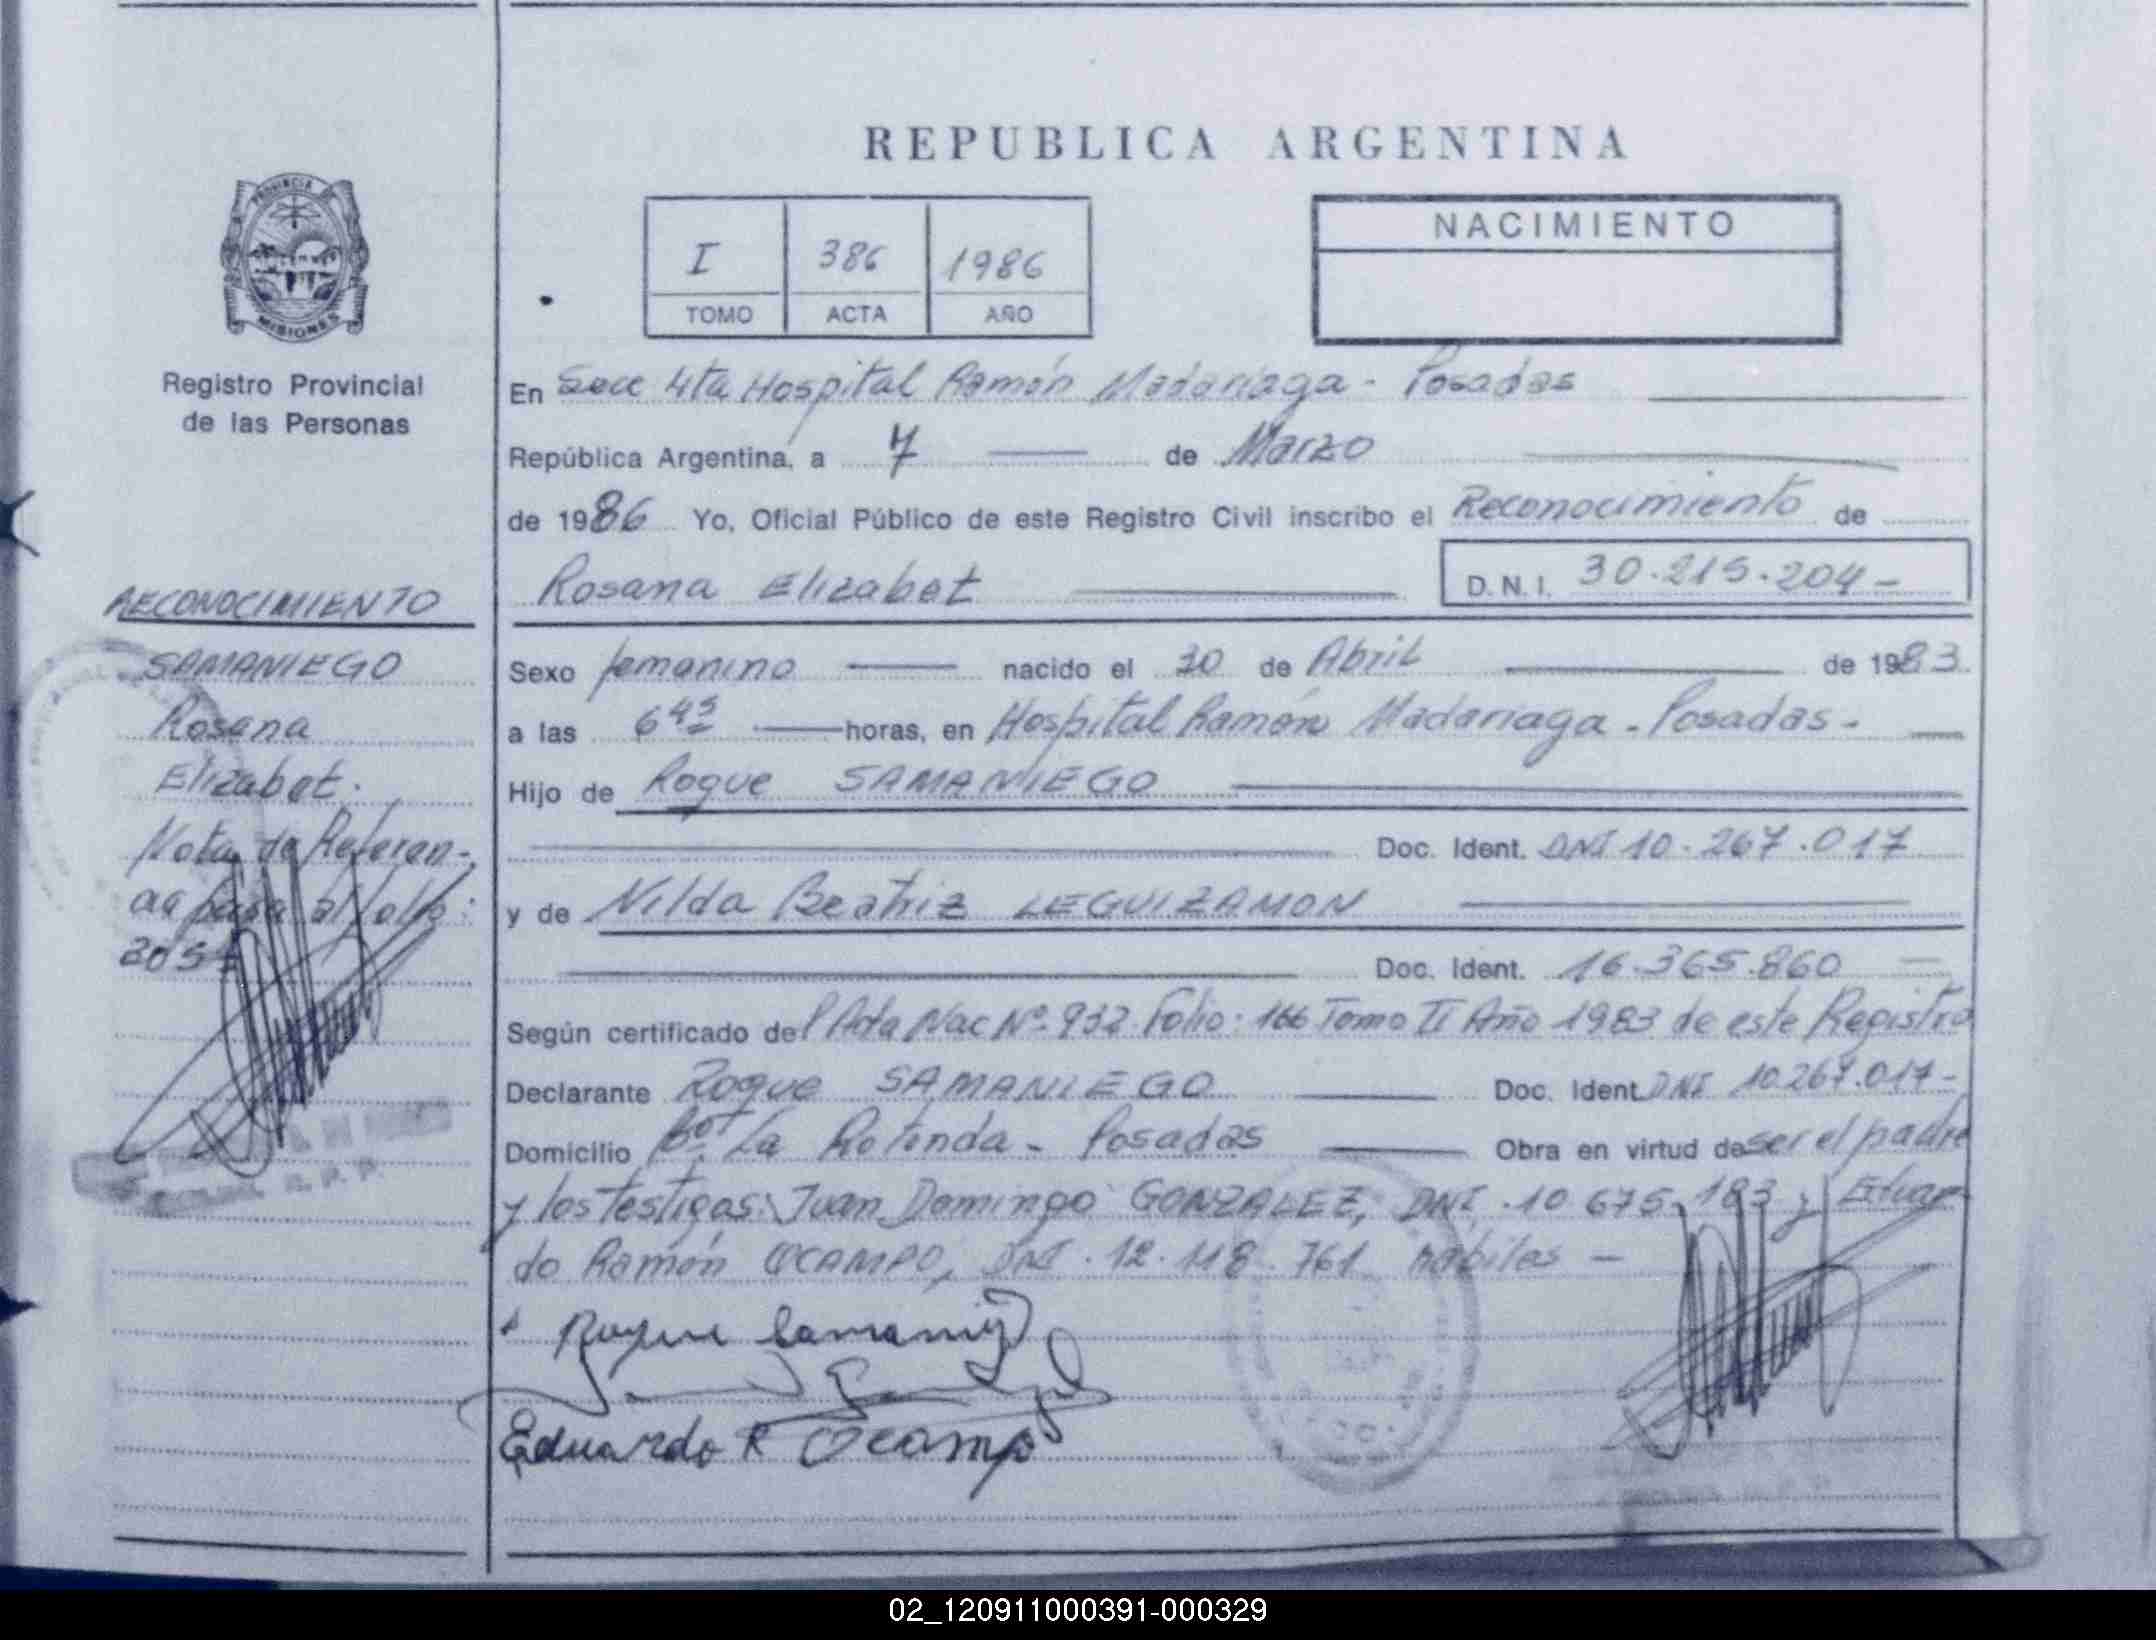 REPUBLICA ARGENTINA
PROVINCIA
MISIONES
Registro Provincial
de las Personas
I 386 1986
TOMO ACTA AÑO
NACIMIENTO
En Secc 4ta Hospital Ramón Madariaga - Posadas
República Argentina, a 7 de Marzo
de 1986 Yo, Oficial Público de este Registro Civil inscribo el Reconocimiento de
Rosana Elizabet D.N.I. 30.215.204-
Sexo femenino nacido el 30 de Abril de 1983
a las 6 45 horas, en Hospital Ramón Madariaga - Posadas -
Hijo de Roque SAMANIEGO
Doc. Ident. DNI 10.267.017
y de Nilda Beatriz LEGUIZAMON
Doc. Ident. 16.365.860
Según certificado de Acta Nac Nº 932 Folio: 166 Tomo II Año 1983 de este Registro
Declarante Roque SAMANIEGO Doc. Ident. DNI 10.267.017-
Domicilio Bº La Rotonda - Posadas Obra en virtud de ser el padre
y los testigos: Juan Domingo GONZALEZ, DNI. 10 675.183 y Eduar
do Ramón OCAMPO, DNI. 12.118.761 habiles -
Roque Samaniego
Eduardo R Ocampo
RECONOCIMIENTO
SAMANIEGO
Rosana
Elizabet.
Nota de Referen-
cia pasa al folio:
205
02_120911000391-000329